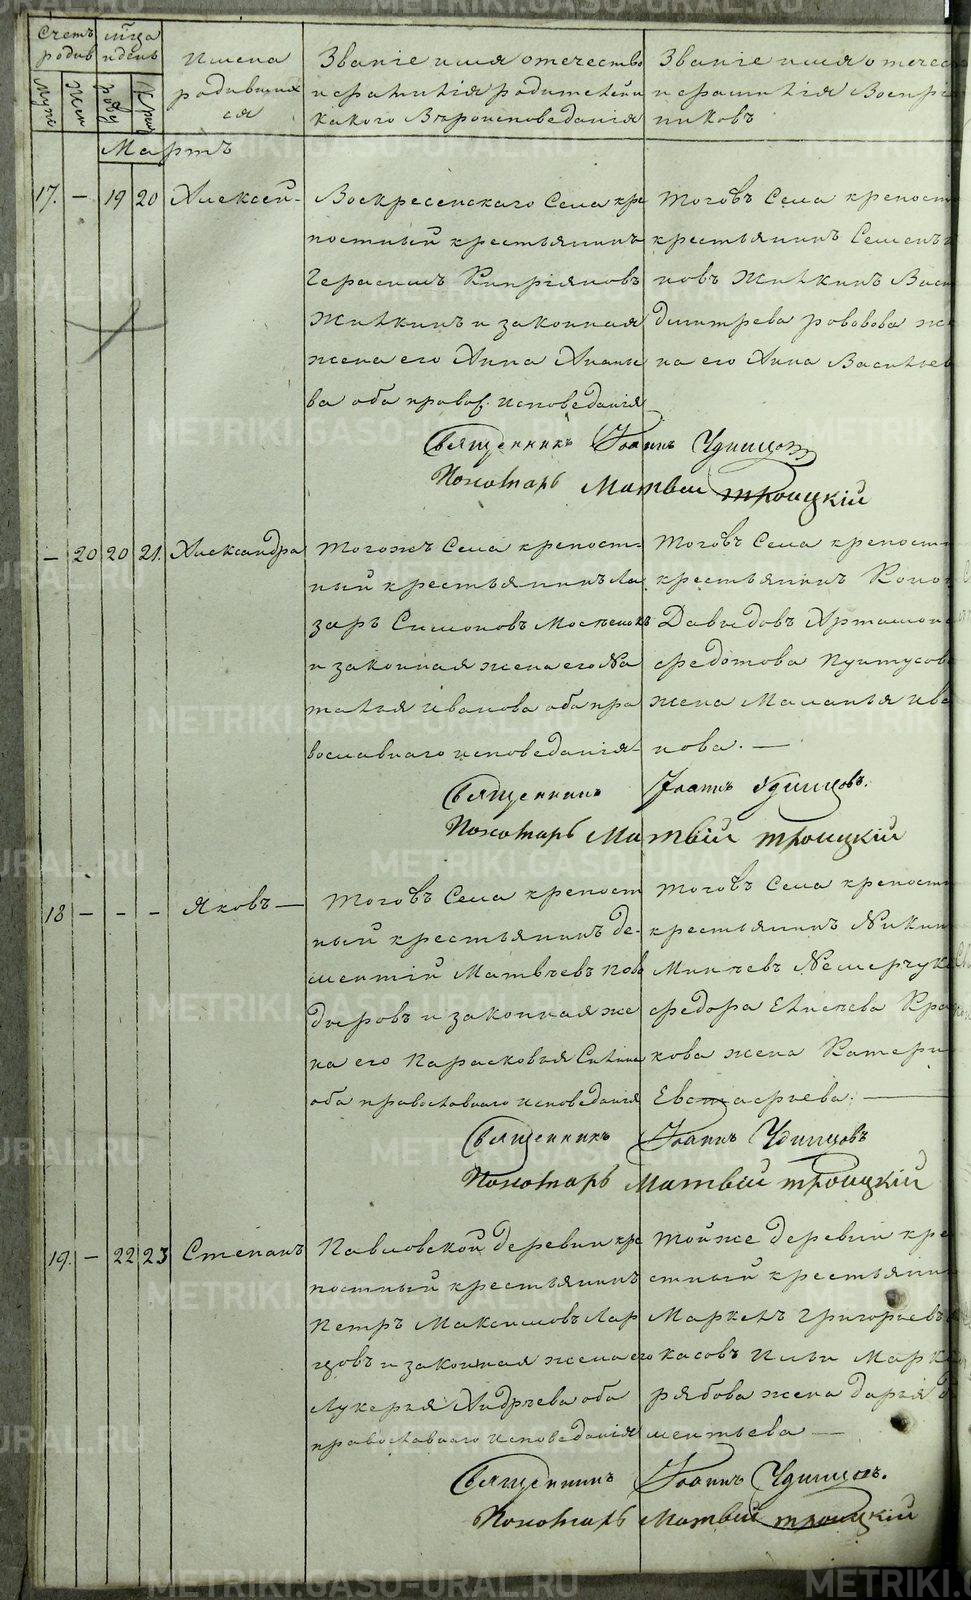 Счетъ родив
мѣсца и день
Имена родившихся
Званіе имя отечество и фамилія родителей и какого Вѣроисповеданія
Званіе имя отечес и фамилія Воспр никовъ
Мужс
Жен
году
Крещ
Мартъ
17. – 19 20 Алексей-
Воскресенскаго Села кре
постный крестьянинъ
Герасимъ Кипріяновъ
Жилкинъ и законная
жена его Анна Анань
ва оба правос. исповеданія
Тоговъ Села крепост
крестьянинъ Семенъ
новъ Жилкинъ Вас
дмитрева ж
на его Анна Васильев
Священникъ Іоаннъ Удинцовъ
Пономарь Матвей Троицкій
– 20 20 21. Александра
Тогожъ Села крепост-
ный крестьянинъ Ла
заръ Симоновъ
и законная жена его На
талья Иванова оба пра
вославнаго исповеданія-
Тоговъ Села крепост
крестьянинъ Коно
Давыдовъ Артамон
Федотова
жена Маланья Ива
нова. —
Священникъ Іоаннъ Удинцовъ.
Пономарь Матвій Троицкій
18 – – – Яковъ —
Тоговъ Села крепост
ный крестьянинъ де-
ментій Матвеевъ Пов
дыровъ и законная же
на его Парасковья Силина
оба православнаго исповеданія
Тоговъ Села крепост
крестьянинъ Никит
Минеевъ Немерчук
Федора Елисеева Кра
кова жена Катери
Евстафьева. —
Священникъ Іоаннъ Удинцовъ
Пономарь Матвей Троицкій
19. – 22 23 Степанъ
Павловской деревни кре
постный крестьянинъ
Петръ Максимовъ Лар
цовъ и законная жена его
Лукерья Андреева оба
православнаго исповеданія
Тойже деревни кре
стный крестьянин
Маркелъ Григорьевъ
касовъ Ильи Марк
рябова жена дарья
ментьева —
Священникъ Іоаннъ Удинцовъ.
Пономарь Матвей Троицкій
METRIKI.GASO-URAL.RU